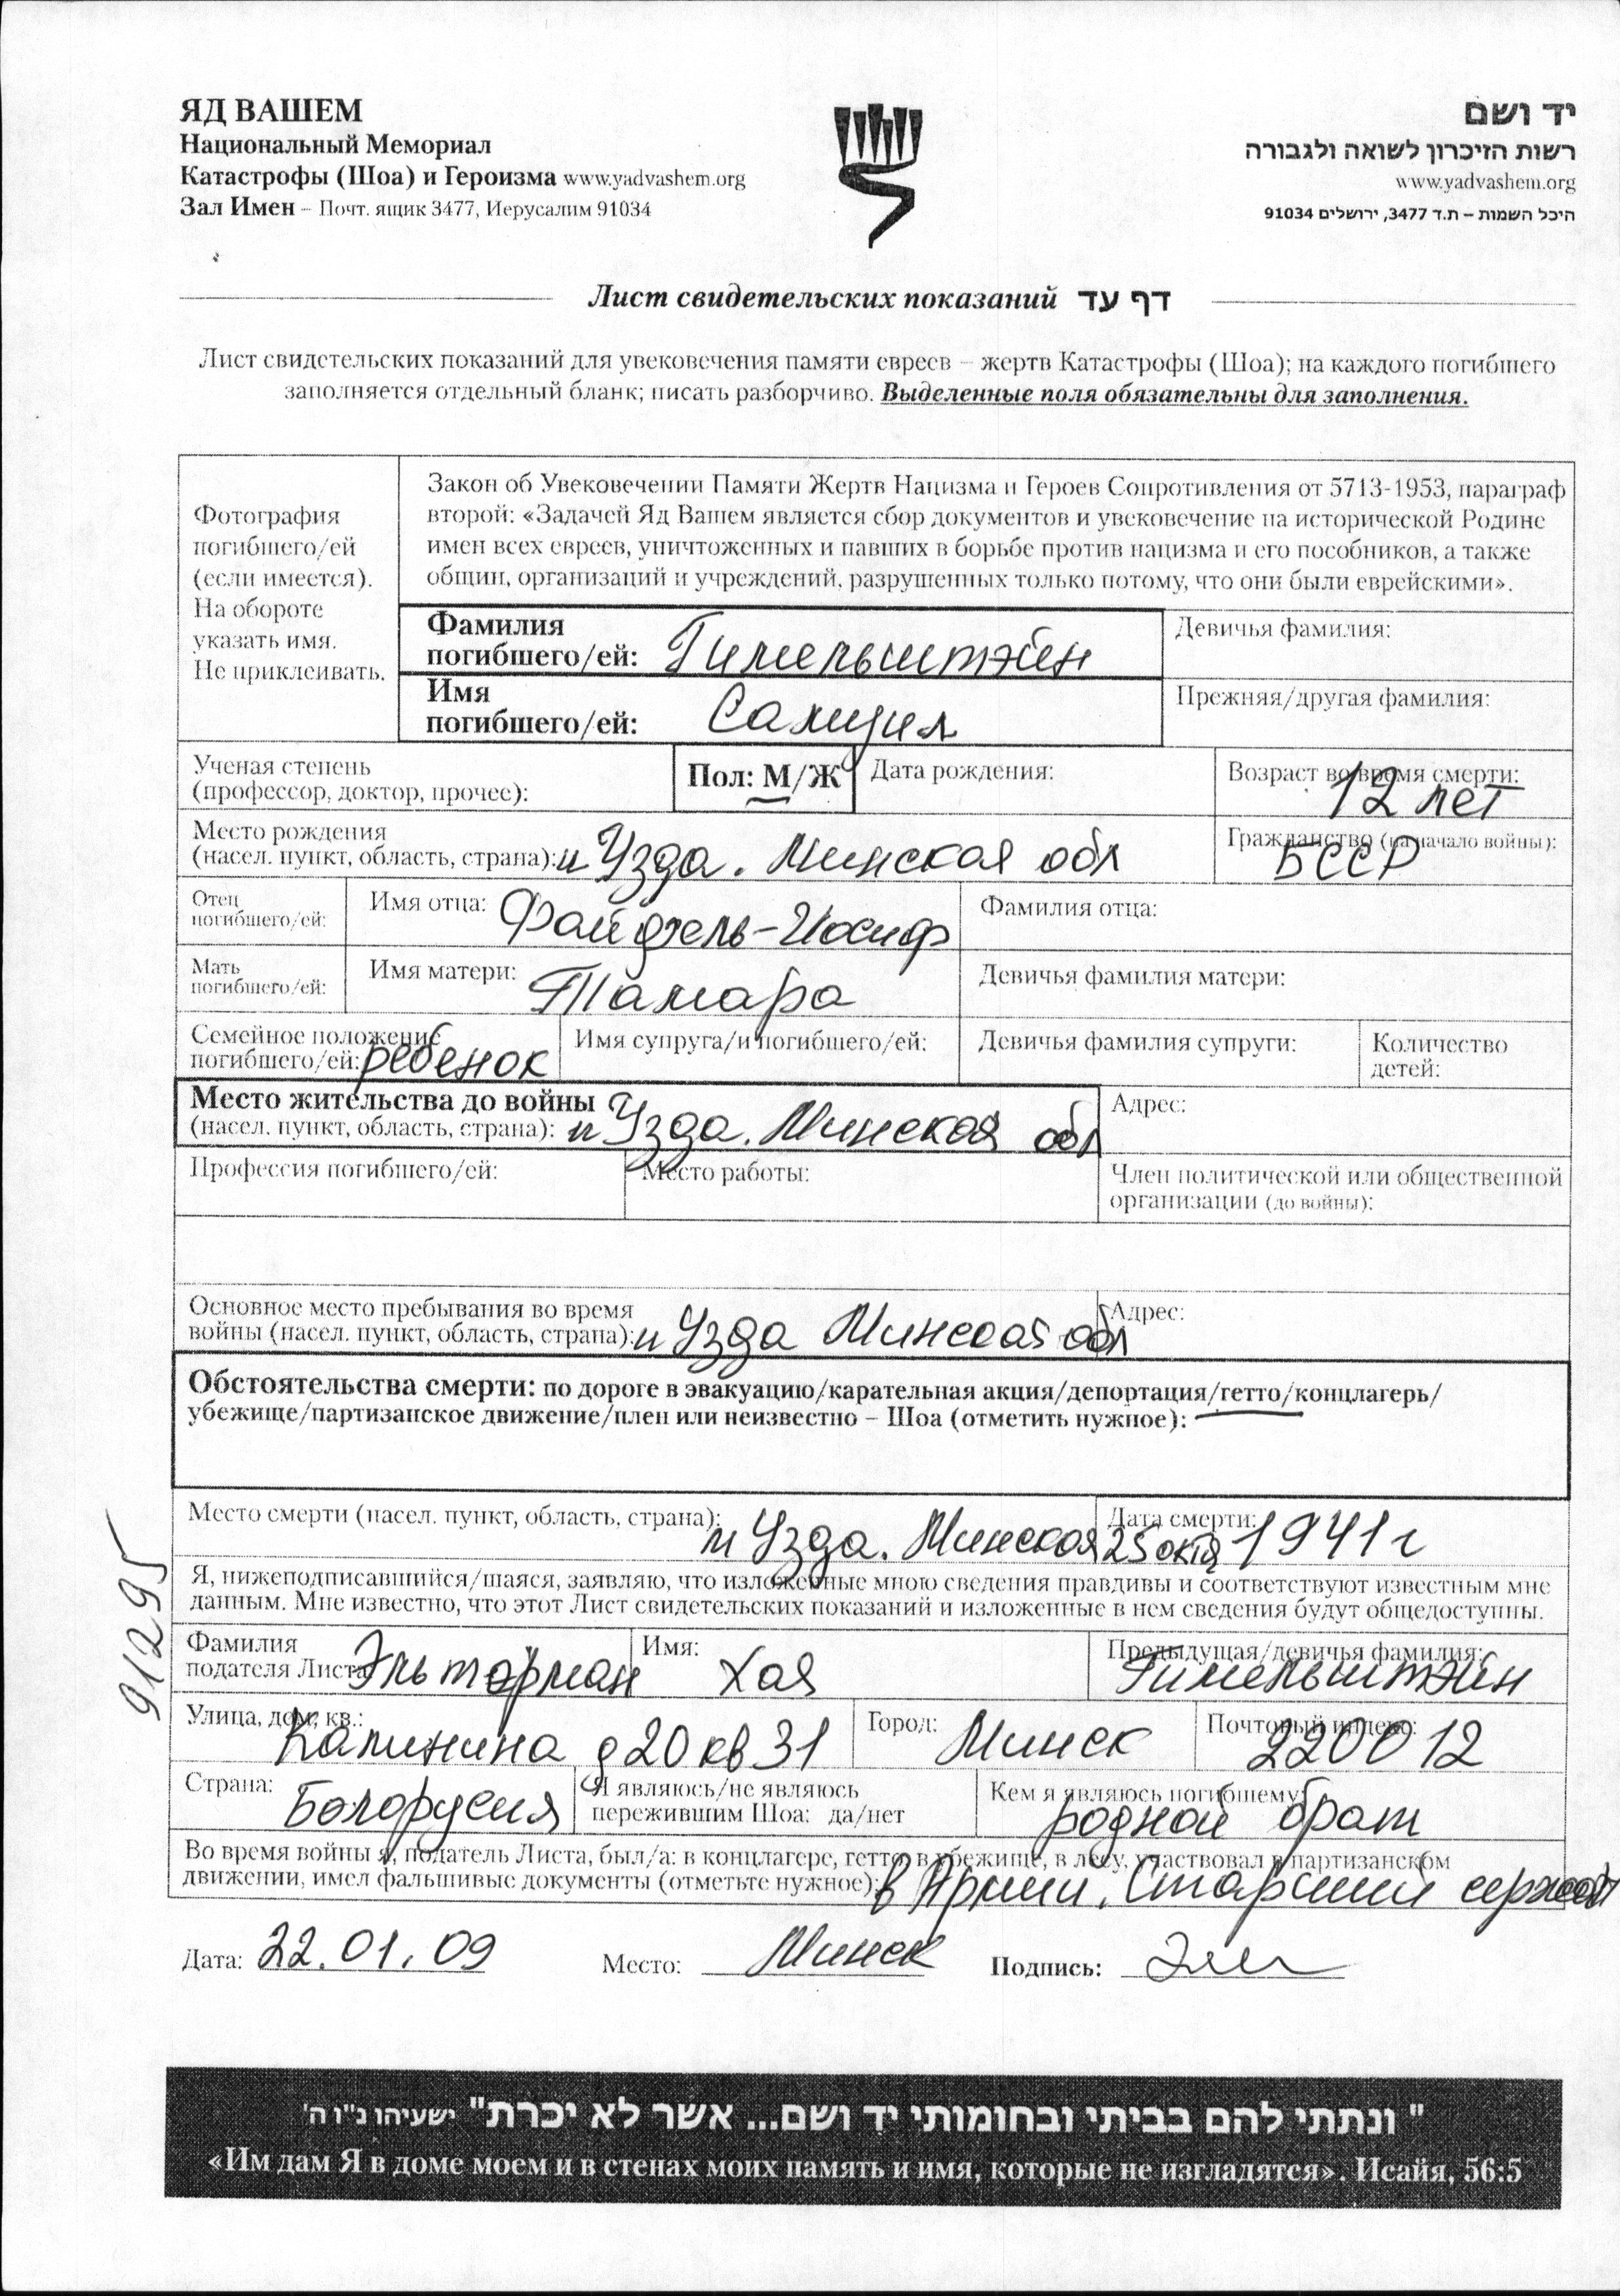 ЯД ВАШЕМ
Национальный Мемориал
Катастрофы (Шоа) и Героизма www.yadvashem.org
Зал Имен – Почт. ящик 3477, Иерусалим 91034
יד ושם
רשות הזיכרון לשואה ולגבורה
www.yadvashem.org
היכל השמות – ת.ד 3477, ירושלים 91034
Лист свидетельских показаний דף עד
Лист свидетельских показаний для увековечения памяти евреев – жертв Катастрофы (Шоа); на каждого погибшего
заполняется отдельный бланк; писать разборчиво. Выделенные поля обязательны для заполнения.
Фотография
погибшего/ей
(если имеется).
На обороте
указать имя.
Не приклеивать.
Закон об Увековечении Памяти Жертв Нацизма и Героев Сопротивления от 5713-1953, параграф
второй: «Задачей Яд Вашем является сбор документов и увековечение на исторической Родине
имен всех евреев, уничтоженных и павших в борьбе против нацизма и его пособников, а также
общин, организаций и учреждений, разрушенных только потому, что они были еврейскими».
Фамилия
погибшего/ей: Гимельштэйн
Девичья фамилия:
Имя
погибшего/ей:
Прежняя/другая фамилия:
Ученая степень
(профессор, доктор, прочее):
Пол: М/Ж
Дата рождения:
Возраст во время смерти:
12 лет
Место рождения
(насел. пункт, область, страна): Узда. Минская обл
Гражданство (на начало войны):
БССР
Отец
погибшего/ей:
Имя отца: Файфель-Иосиф
Фамилия отца:
Мать
погибшего/ей:
Имя матери: Тамара
Девичья фамилия матери:
Семейное положение
погибшего/ей: ребенок
Имя супруга/и погибшего/ей:
Девичья фамилия супруги:
Количество
детей:
Место жительства до войны
(насел. пункт, область, страна): Узда. Минская обл
Адрес:
Профессия погибшего/ей:
Место работы:
Член политической или общественной
организации (до войны):
Основное место пребывания во время
войны (насел. пункт, область, страна): Узда Минская обл
Адрес:
Обстоятельства смерти: по дороге в эвакуацию/карательная акция/депортация/гетто/концлагерь/
убежище/партизанское движение/плен или неизвестно – Шоа (отметить нужное):
Место смерти (насел. пункт, область, страна):
м Узда. Минская
Дата смерти:
25 октя 1941 г
Я, нижеподписавшийся/шаяся, заявляю, что изложенные мною сведения правдивы и соответствуют известным мне
данным. Мне известно, что этот Лист свидетельских показаний и изложенные в нем сведения будут общедоступны.
Фамилия
подателя Листа:
Имя: Хая
Предыдущая/девичья фамилия:
Гимельштэйн
Улица, дом, кв.:
Калинина д 20 кв 31
Город: Минск
Почтовый индекс:
220012
Страна: Белорусия
Я являюсь/не являюсь
пережившим Шоа: да/нет
Кем я являюсь погибшему
родной брат
Во время войны я, податель Листа, был/а: в концлагере, гетто, в убежище, в лесу, участвовал в партизанском
движении, имел фальшивые документы (отметьте нужное): в Армии. Старший сержант
Дата: 22.01.09
Место: Минск
Подпись:
91295
" ונתתי להם בביתי ובחומותי יד ושם... אשר לא יכרת" ישעיהו נ"ו ה'
«Им дам Я в доме моем и в стенах моих память и имя, которые не изгладятся». Исайя, 56:5